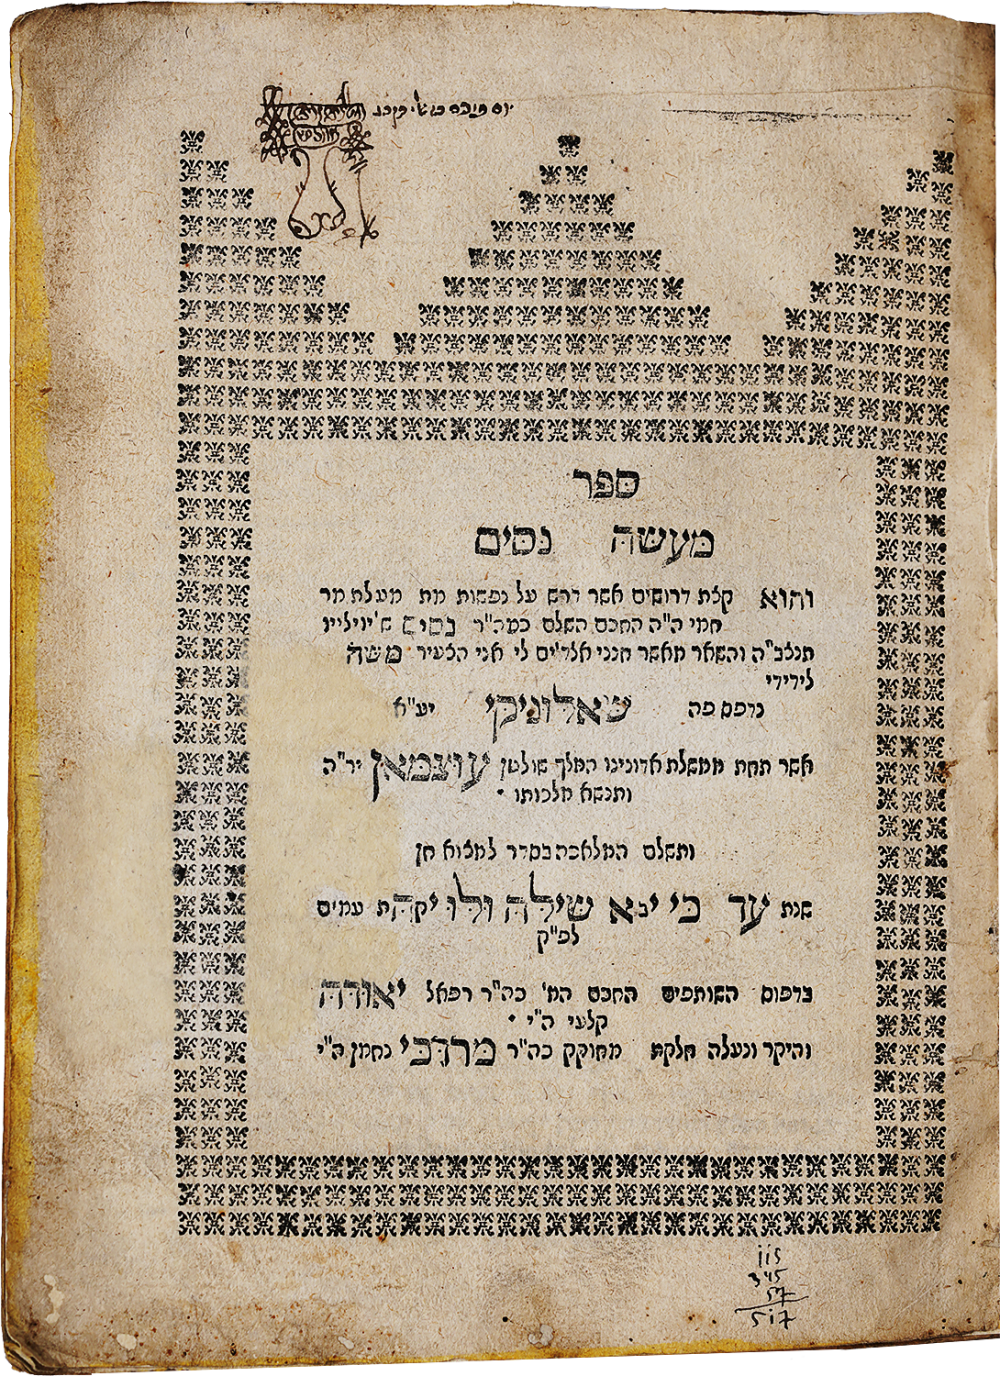 ספר
מעשה נסים
והוא קצת דרושים אשר דרש על נפשות מת מעלת מר
חמי ה"ה החכם השלם כמה"ר נסים
תנצב"ה והשאר מאשר חנני אלדים לי אני הצעיר משה
לידידי
נדפס פה שאלוניקי יע"א
אשר תחת ממשלת אדונינו המלך שולטן עוצמאן יר"ה
ותנשא מלכותו ·
ותשלם המלאכה בסדר למצוא חן
שנת עד כי יבא שילה ולו יקהת עמים
לפ"ק
בדפוס השותפים החכם הח' כה"ר רפאל יאודה
קלעי הי"ו ·
והיקר ונעלה חלקת מחוקק כה"ר מרדכי נחמן ה"י
115
345
57
517